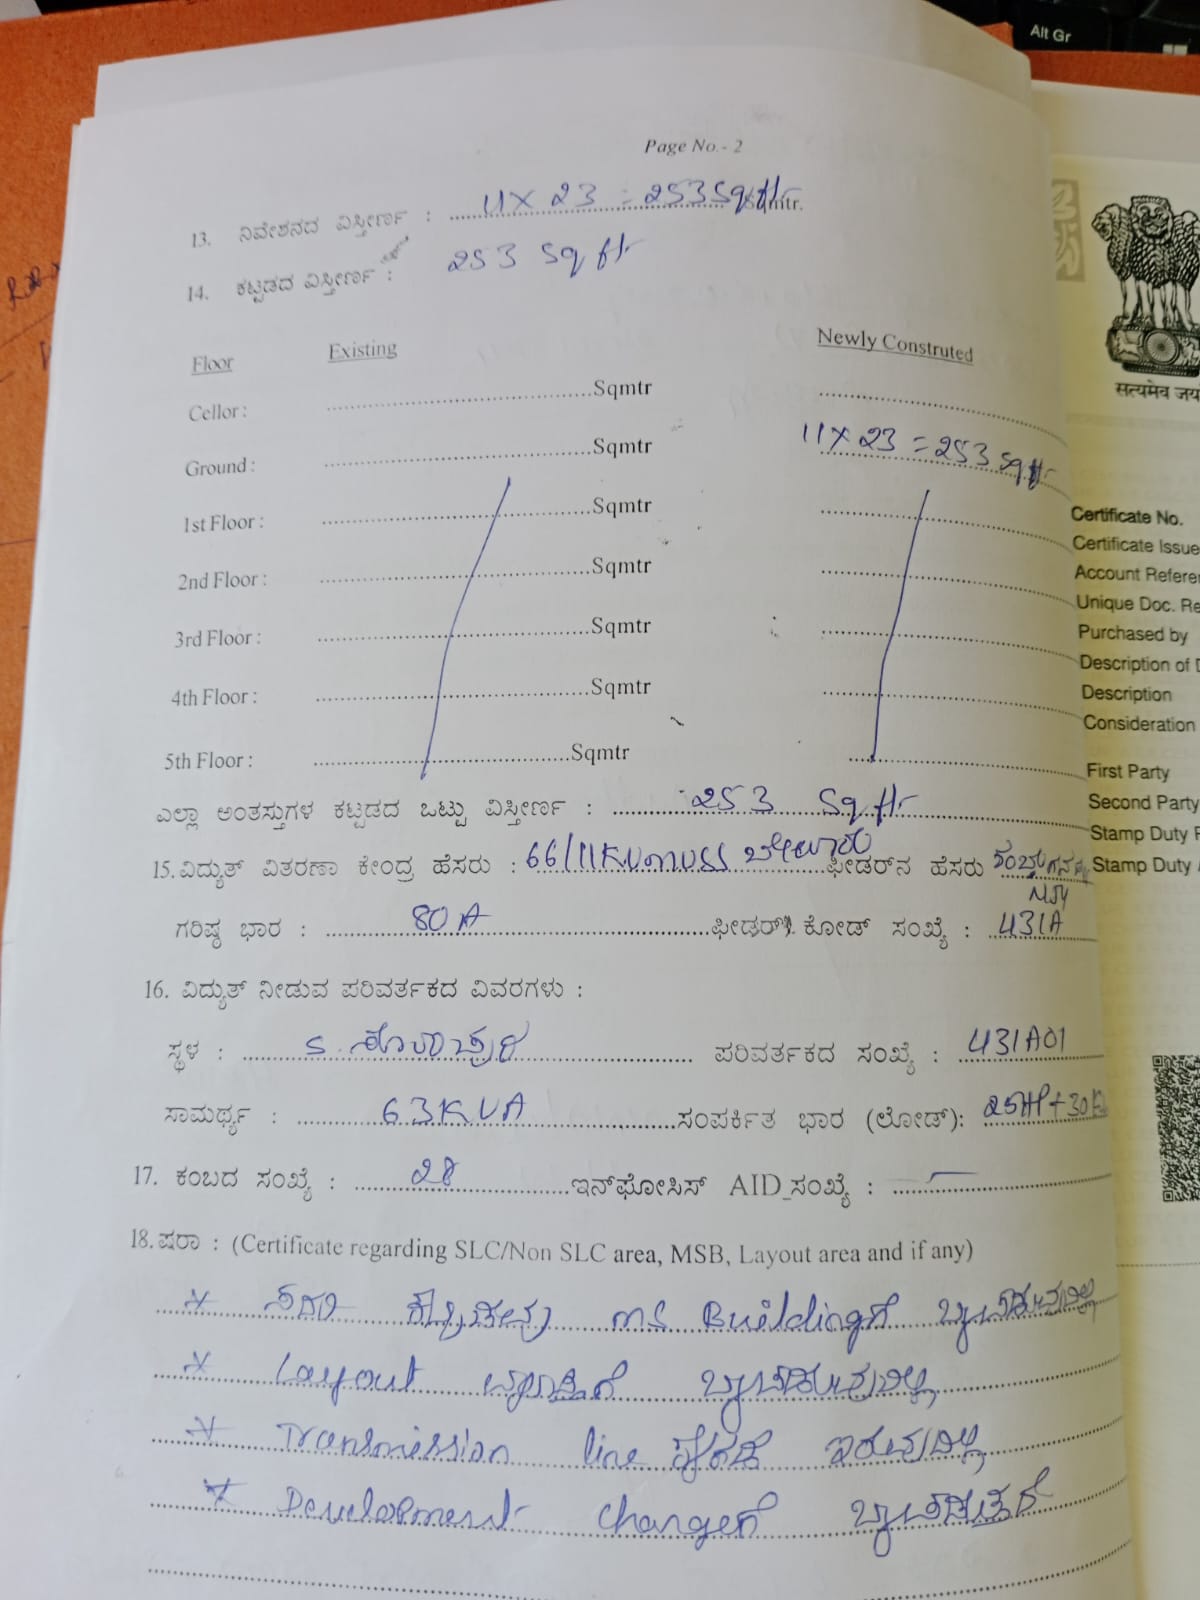 Alt Gr
Page No.- 2
13. ನಿವೇಶನದ ವಿಸ್ತೀರ್ಣ : 11 X 23 = 253 Sqft Sqmtr.
14. ಕಟ್ಟಡದ ವಿಸ್ತೀರ್ಣ : 253 Sqft
Floor Existing Newly Construted
Cellor : Sqmtr
Ground : Sqmtr 11 X 23 = 253 Sqft
1st Floor : Sqmtr
2nd Floor : Sqmtr
3rd Floor : Sqmtr
4th Floor : Sqmtr
5th Floor : Sqmtr
ಎಲ್ಲಾ ಅಂತಸ್ತುಗಳ ಕಟ್ಟಡದ ಒಟ್ಟು ವಿಸ್ತೀರ್ಣ : 253 Sqft
15. ವಿದ್ಯುತ್ ವಿತರಣಾ ಕೇಂದ್ರ ಹೆಸರು : 66/11KV MUSS ಬೇಲೂರು ಫೀಡರ್‌ನ ಹೆಸರು NJY
ಗರಿಷ್ಠ ಭಾರ : 80 A ಫೀಡರ್ ಕೋಡ್ ಸಂಖ್ಯೆ : 431A
16. ವಿದ್ಯುತ್ ನೀಡುವ ಪರಿವರ್ತಕದ ವಿವರಗಳು :
ಸ್ಥಳ : S. ಪರಿವರ್ತಕದ ಸಂಖ್ಯೆ : 431A01
ಸಾಮರ್ಥ್ಯ : 63KVA ಸಂಪರ್ಕಿತ ಭಾರ (ಲೋಡ್): 25HP + 30K
17. ಕಂಬದ ಸಂಖ್ಯೆ : 28 ಇನ್‌ಫೋಸಿಸ್ AID_ಸಂಖ್ಯೆ : —
18. ಷರಾ : (Certificate regarding SLC/Non SLC area, MSB, Layout area and if any)
* ಸದರಿ ಕಟ್ಟಡವು MS Buildingಗೆ
* Layout ವ್ಯಾಪ್ತಿಗೆ
* Transmission line ಇರುವುದಿಲ್ಲ
* Development chargeಗೆ
सत्यमेव जय
Certificate No.
Certificate Issue
Account Refere
Unique Doc. Re
Purchased by
Description of D
Description
Consideration
First Party
Second Party
Stamp Duty P
Stamp Duty